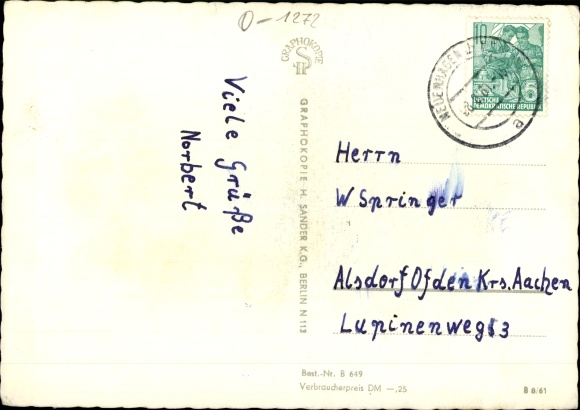 0-1272
GRAPHOKOPIE
10
DEUTSCHE
DEMOKRATISCHE REPUBLIK
NEUENHAGEN
e
Viele Grüße
Norbert
GRAPHOKOPIE H. SANDER K.G., BERLIN N 113
Herrn
W Springer
Alsdorf Ofden Krs. Aachen
Lupinenweg 13
Best.-Nr. B 649
Verbraucherpreis DM —,25
B 8/61